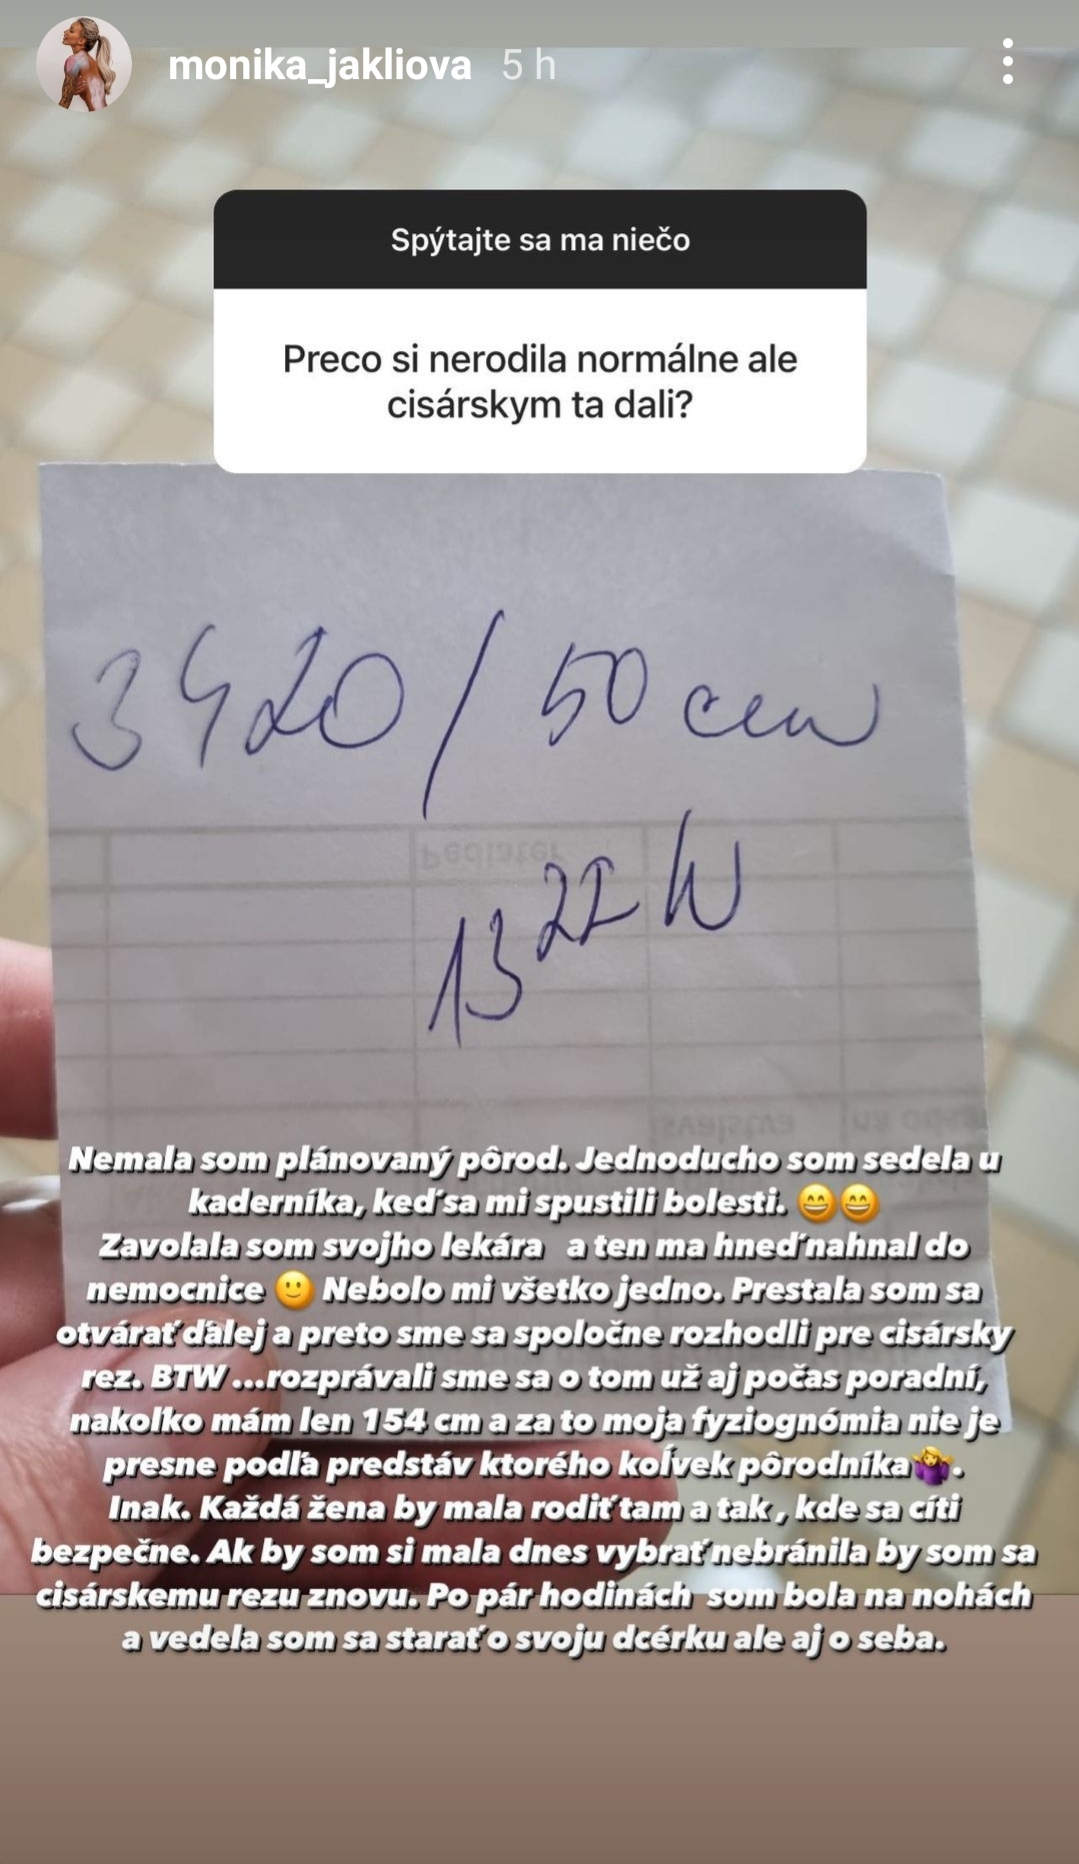 monika_jakliova 5 h
Spýtajte sa ma niečo
Preco si nerodila normálne ale
cisárskym ta dali?
3420/50 cm
Pediater
13 22 h
svalstva
Nemala som plánovaný pôrod. Jednoducho som sedela u
kaderníka, keď sa mi spustili bolesti. 😄😄
Zavolala som svojho lekára a ten ma hneď nahnal do
nemocnice 🙂 Nebolo mi všetko jedno. Prestala som sa
otvárať ďalej a preto sme sa spoločne rozhodli pre cisársky
rez. BTW ...rozprávali sme sa o tom už aj počas poradní,
nakoľko mám len 154 cm a za to moja fyziognómia nie je
presne podľa predstáv ktorého koľvek pôrodníka🤷‍♀️.
Inak. Každá žena by mala rodiť tam a tak, kde sa cíti
bezpečne. Ak by som si mala dnes vybrať nebránila by som sa
cisárskemu rezu znovu. Po pár hodinách som bola na nohách
a vedela som sa starať o svoju dcérku ale aj o seba.